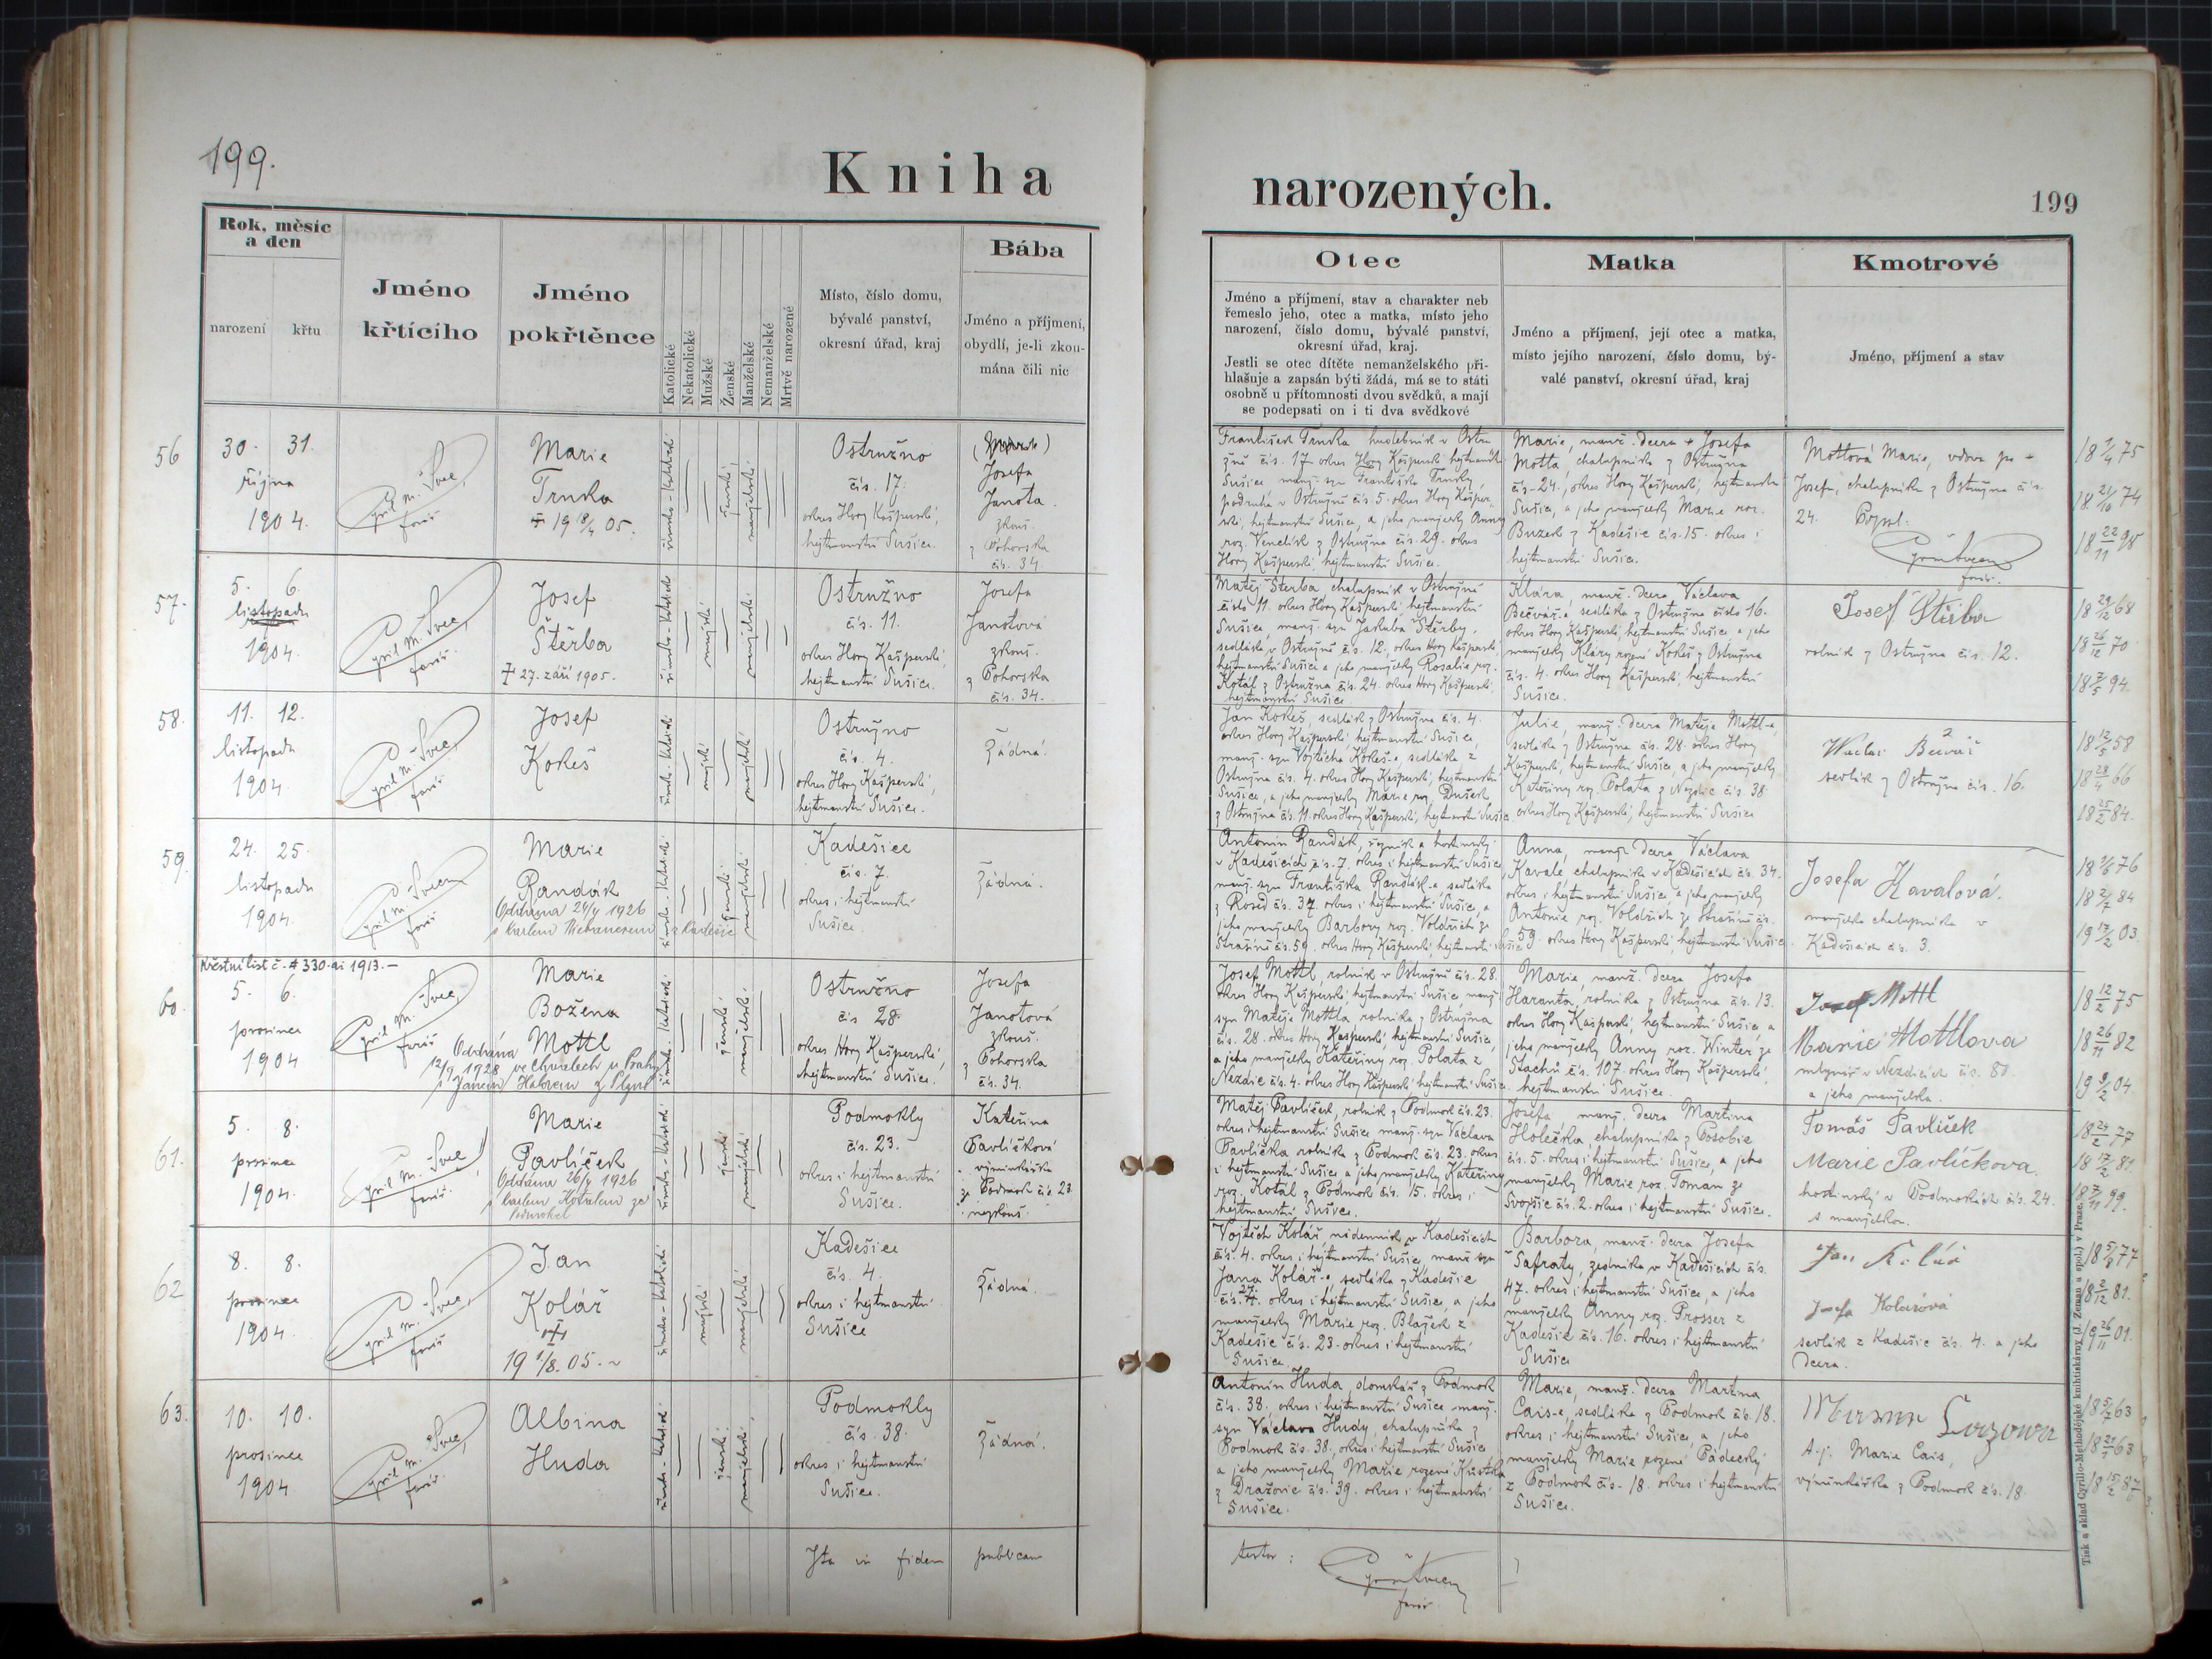 199.
Kniha
narozených.
199
Rok, měsíc
a den
narození
křtu
Jméno
křtícího
Jméno
pokřtěnce
Katolické
Nekatolické
Mužské
Ženské
Manželské
Nemanželské
Mrtvě narozené
Místo, číslo domu,
bývalé panství,
okresní úřad, kraj
Bába
Jméno a příjmení,
obydlí, je-li zkou-
mána čili nic
Otec
Jméno a příjmení, stav a charakter neb
řemeslo jeho, otec a matka, místo jeho
narození, číslo domu, bývalé panství,
okresní úřad, kraj.
Jestli se otec dítěte nemanželského při-
hlašuje a zapsán býti žádá, má se to státi
osobně u přítomnosti dvou svědků, a mají
se podepsati on i ti dva svědkové
Matka
Jméno a příjmení, její otec a matka,
místo jejího narození, číslo domu, bý-
valé panství, okresní úřad, kraj
Kmotrové
Jméno, příjmení a stav
56
30. 31.
října
1904.
Cyril M. Švec,
farář
Marie
Trnka
19 18/4 05.
římsko-katolické
ženské
manželské
Ostružno
čís. 17.
okres Hory Kašperské,
hejtmanství Sušice.
Josefa
Janota
zkouš.
z Pohorska
čís. 34.
František Trnka
žně čís. 17 okres Hory Kašperské hejtmanství
Sušice manž. syn Františka Trnky,
podruha v Ostružně čís. 5. okres Hory Kašper-
ské, hejtmanství Sušice, a jeho manželky Anny
roz. Venclík z Ostružna čís. 29. okres
Hory Kašperské, hejtmanství Sušice.
Marie, manž. dcera + Josefa
Mottla, chalupníka z Ostružna
čís. 24., okres Hory Kašperské, hejtmanství
Sušice, a jeho manželky Marie roz.
Buzek z Kadešic čís. 15. okres i
hejtmanství Sušice.
Mottová Marie, vdova po
Josefu, chalupníku z Ostružna čís.
24.
farář.
57.
5. 6.
listopadu
1904.
Cyril M. Švec,
farář.
Josef
Štěrba
27. září 1905.
římsko-katolické
mužské
manželské
Ostružno
čís. 11.
okres Hory Kašperské,
hejtmanství Sušice.
Josefa
Janotová
zkouš.
z Pohorska
čís. 34.
Matěj Štěrba chalupník v Ostružně
číslo 11. okres Hory Kašperské, hejtmanství
Sušice, manž. syn Jakuba Štěrby,
sedláka v Ostružně čís. 12., okres Hory Kašperské,
hejtmanství Sušice a jeho manželky Rosalie roz.
Kotál z Ostružna čís. 24. okres Hory Kašperské,
hejtmanství Sušice
Klára, manž. dcera Václava
Bečváře sedláka z Ostružna číslo 16.
okres Hory Kašperské, hejtmanství Sušice, a jeho
manželky Kláry rozené Kokeš z Ostružna
čís. 4. okres Hory Kašperské, hejtmanství
Sušice.
Josef Štěrba
rolník z Ostružna čís. 12.
58.
11. 12.
listopadu
1904.
Cyril M. Švec,
farář
Josef
Kokeš
mužské
manželské
Ostružno
čís. 4.
okres Hory Kašperské,
hejtmanství Sušice.
Žádná.
Jan Kokeš, sedlák z Ostružna čís. 4.
okres Hory Kašperské, hejtmanství Sušice,
manž. syn Vojtěcha Kokeš-e, sedláka z
Ostružna čís. 4. okres Hory Kašperské, hejtmanství
Sušice, a jeho manželky Marie roz. Dušek
z Ostružna čís. 11. okres Hory Kašperské, hejtmanství Sušice.
Julie, manž. dcera Matěje Mottl-a,
sedláka z Ostružna čís. 28. okres Hory
Kašperské, hejtmanství Sušice, a jeho manželky
Kateřiny roz. Polata z Nezdic čís. 38
okres Hory Kašperské, hejtmanství Sušice
sedlák z Ostružna čís. 16.
59.
24. 25.
listopadu
1904.
Cyril M. Švec,
farář
Marie
Randák
Oddána 24/4 1926
z Kadešic
ženské
manželské
Kadešice
čís. 7.
okres i hejtmanství
Sušice.
Žádná.
Antonín Randák, řezník a hostinský
v Kadešicích čís. 7. okres i hejtmanství Sušice,
manž. syn Františka Randák-a, sedláka
z Rosed čís. 37. okres i hejtmanství Sušice, a
jeho manželky Barbory roz. Voldřich ze
Strašína čís. 59. okres Hory Kašperské, hejtmanství Sušice
Anna, manž. dcera Václava
Kavale chalupníka v Kadešicích čís. 34.
okres i hejtmanství Sušice, a jeho manželky
Antonie roz. Voldřich ze Strašína čís.
59. okres Hory Kašperské, hejtmanství Sušice.
Josefa Kavalová.
manželka chalupníka v
Kadešicích čís. 3.
Křestní list č. 330 ai 1913.
60.
5. 6.
prosince
1904
Cyril M. Švec,
farář
Marie
Božena
Mottl
Oddána
12/9 1928 ve Chuchlech u Prahy
ženské
manželské
Ostružno
čís 28.
okres Hory Kašperské,
hejtmanství Sušice.
Josefa
Janotová
zkouš.
z Pohorska
čís. 34.
Josef Mottl, rolník v Ostružně čís. 28.
okres Hory Kašperské, hejtmanství Sušice manž.
syn Matěje Mottla rolníka z Ostružna
čís. 28. okres Hory Kašperské, hejtmanství Sušice,
a jeho manželky Kateřiny roz. Polata z
Nezdic čís. 4. okres Hory Kašperské hejtmanství Sušice
Marie, manž. dcera Josefa
Haranta, rolníka z Ostružna čís. 13.
okres Hory Kašperské, hejtmanství Sušice, a
jeho manželky, Anny roz. Winter ze
Stachů čís. 107. okres Hory Kašperské,
hejtmanství Sušice.
Josef Mottl
Marie Mottlova
mlynář v Nezdicích čís. 81.
a jeho manželka.
61.
5. 8.
prosince
1904.
Cyril M. Švec,
farář.
Marie
Pavlíček
Oddána 26/4 1926
ženské
manželské
Podmokly
čís. 23.
okres i hejtmanství
Sušice.
Kateřina
Pavlíčková
výminkářka
ze Podmok čís. 23.
nezkouš.
Matěj Pavlíček, rolník z Podmok čís. 23.
okres i hejtmanství Sušice manž. syn Václava
Pavlíčka rolníka z Podmok čís. 23. okres
i hejtmanství Sušice a jeho manželky Kateřiny
roz. Kotál z Podmok čís. 15. okres i
hejtmanství Sušice.
Josefa, manž. dcera Martina
Holečka, chalupníka z Posobic
čís. 5. okres i hejtmanství Sušice, a jeho
manželky Marie roz. Toman ze
Svojšic čís. 2. okres i hejtmanství Sušice.
Tomáš Pavlíček
Marie Pavlíčkova.
hostinský v Podmoklech čís. 24.
s manželkou.
62
8. 8.
prosince
1904.
Cyril M. Švec,
farář
Jan
Kolář
19 1/8. 05.
mužské
manželské
Kadešice
čís. 4.
okres i hejtmanství
Sušice
Žádná.
Vojtěch Kolář, nádenník v Kadešicích
čís. 4. okres i hejtmanství Sušice, manž. syn
Jana Kolář-e, sedláka z Kadešic
okres i hejtmanství Sušice, a jeho
manželky Marie roz. Blažek z
Kadešic čís. 23. okres i hejtmanství
Sušice.
Barbora, manž. dcera Josefa
Šafraty, zedníka v Kadešicích čís.
47. okres i hejtmanství Sušice, a jeho
manželky Anny roz. Prosser z
Kadešic čís. 16. okres i hejtmanství
Sušice
Jan Kolář
Kolářová
sedlák z Kadešic čís. 4. a jeho
dcera.
63.
10. 10.
prosince
1904
Cyril M. Švec,
farář
Albina
Huda
ženské
manželské
Podmokly
čís. 38.
okres i hejtmanství
Sušice.
Žádná.
Antonín Huda, domkář z Podmok
čís. 38. okres i hejtmanství Sušice manž.
syn Václava Hudy, chalupníka z
Podmok čís. 38, okres i hejtmanství Sušice
a jeho manželky Marie rozené Kůstka
z Dražovic čís. 39. okres i hejtmanství
Sušice.
Marie, manž. dcera Martina
Cais-e, sedláka z Podmok čís. 18.
okres i hejtmanství Sušice, a jeho
manželky Marie rozené Pádecký
z Podmok čís. 18. okres i hejtmanství
Sušice.
t.j. Marie Cais,
výminkářka z Podmok čís. 18.
Ita in fidem publicam
testor:
farář
Tisk a sklad Cyrillo-Methodějské knihtiskárny (J. Zeman a spol.) v Praze.